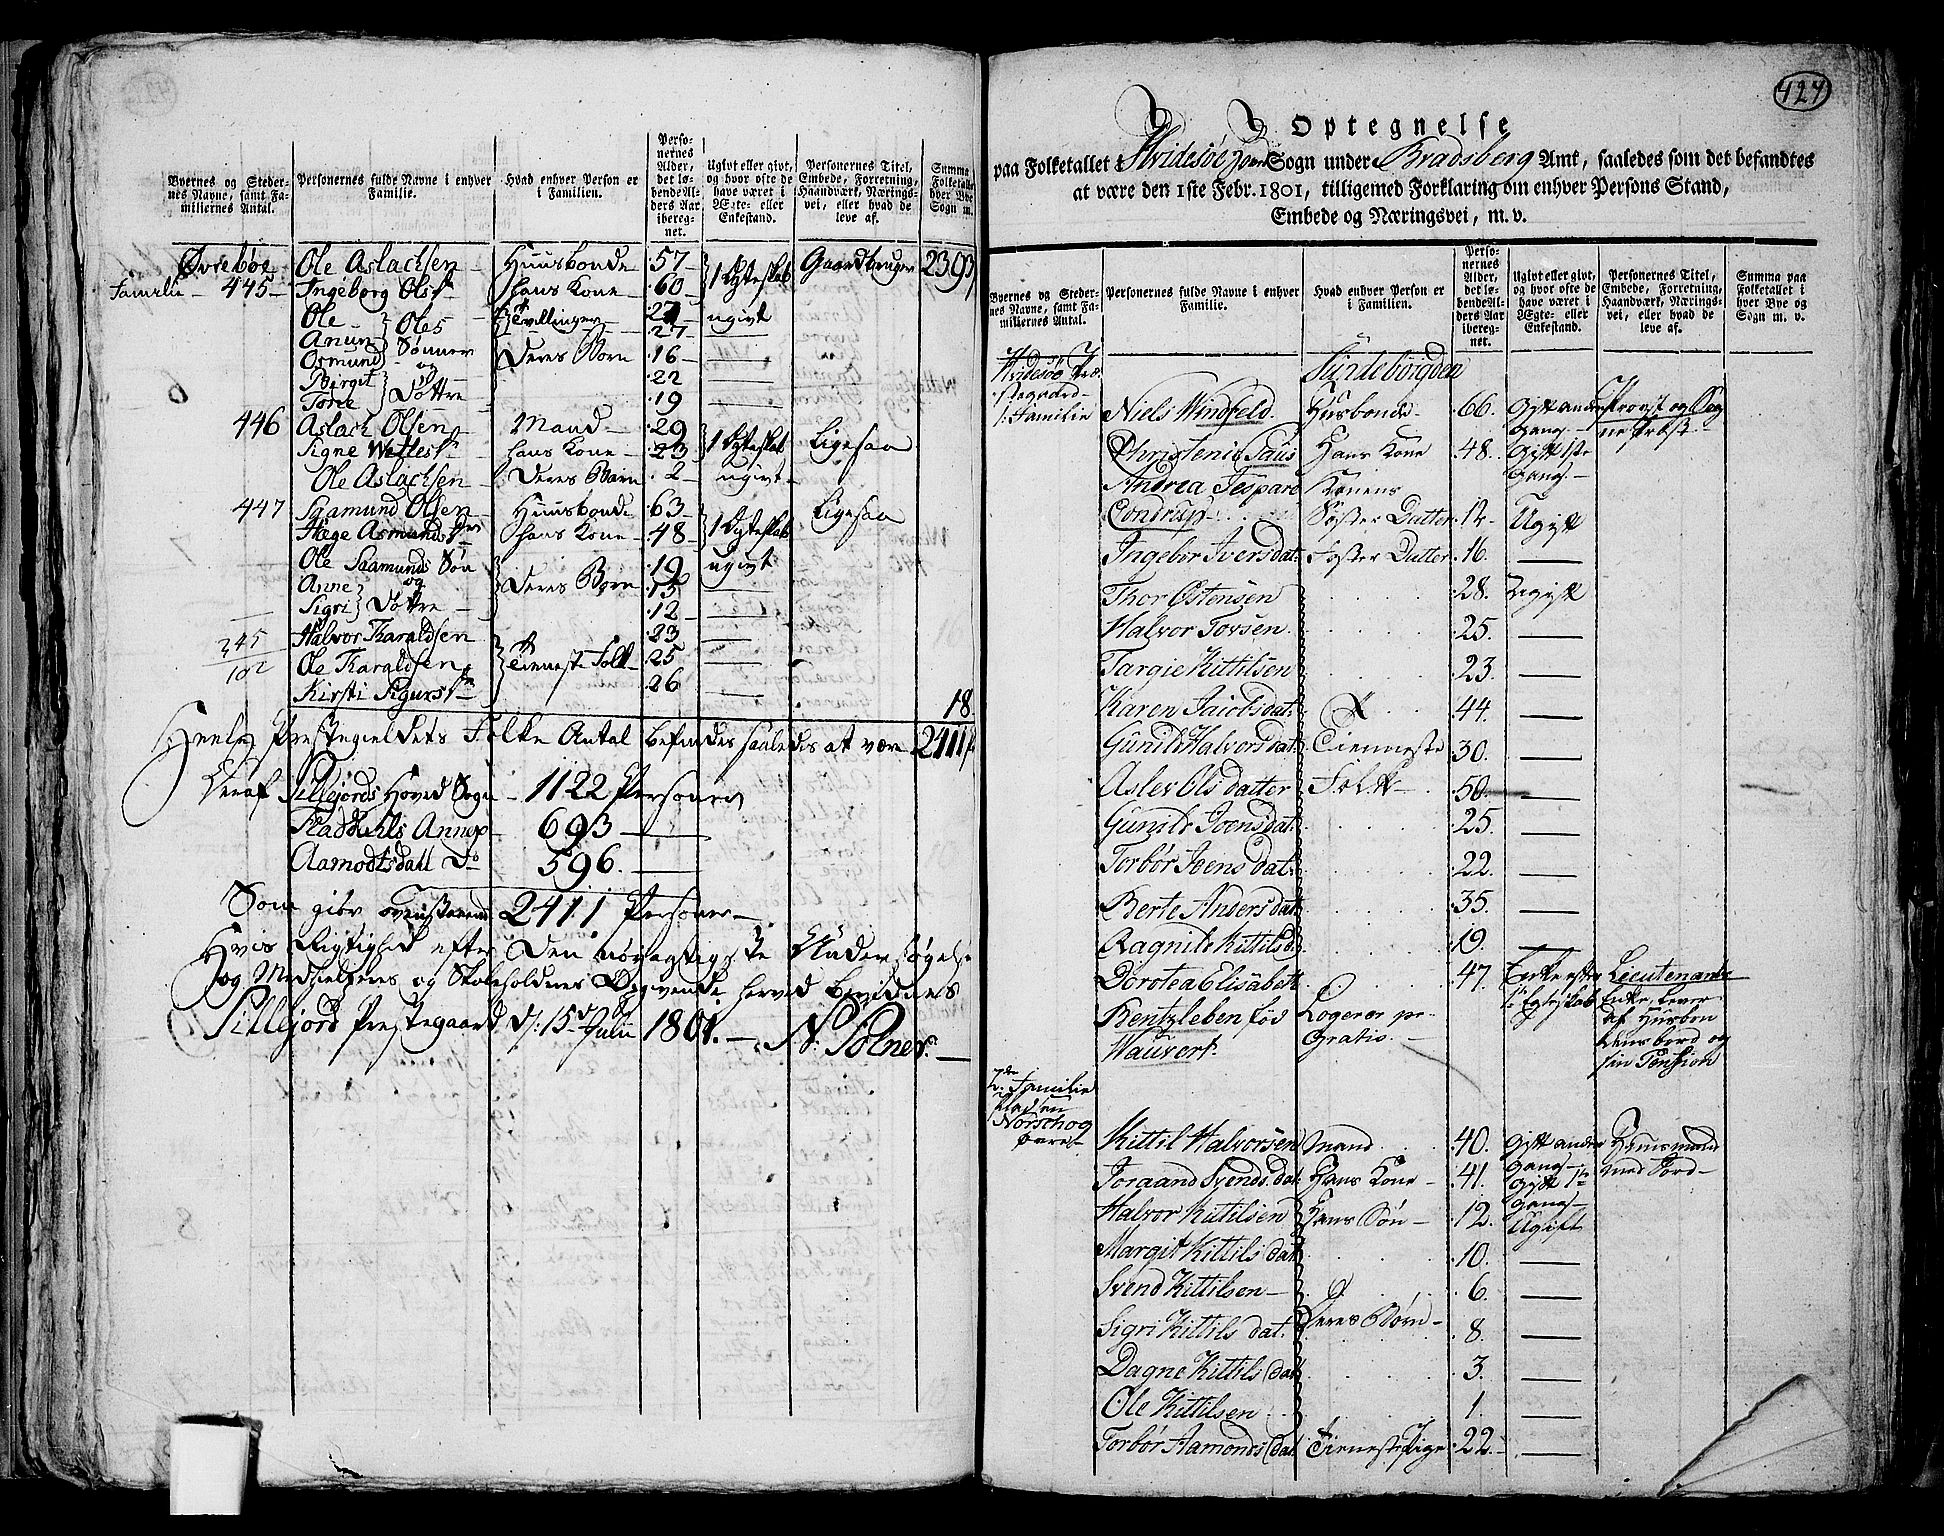 Byernes og Steder-
nes Navne, samt Fa-
miliernes Antal.
Personernes fulde Navne i enhver
Familie.
Hvad enhver Person er
i Familien.
Perso-
nernes
Alder,
det lø-
bende Al-
ders Aar
ibereg-
net.
Ugivt eller givt,
og hvor ofte de
have været i
Ægte- eller
Enkestand.
Personernes Titel,
Embede, Forretning,
Haandværk, Nærings-
vei, eller hvad de
leve af.
Summa
Folketallet
hver Bye
Sogn m.
Øvrebøe Ole Aslachsen Huusbonde 57 1 Ægteskab Gaardbruger 2393
Familie 445 Ingeborg Olsdr hans Kone 60
Ole Oles Tvillinger 27 ugivt
Anun Sønner 27
Osmund og Deres Børn 16
Birgit 22
Tone Døttre 19
446 Aslach Olsen Mand 29 1 Ægteskab Ligesaa
Signe Wetlesdr hans Kone 23
Ole Aslachsen Deres Barn 2 ugivt
447 Saamund Olsen Huusbonde 63 1 Ægteskab Ligesaa
Hæge Asmundsdr hans Kone 48
Ole Saamunds Søn 19 ugivt
Anne og Deres Børn 15
Sigri Døttre 12
345 Halvor Haraldsen 23
102 Ole Haraldsen Tieneste Folk 25
Kirsti Sigursdr 26
18
Heele Prestegieldets Folke Antal befindes saaledes at være 2411
Deraf Sillejords Hoved Sogn 1122 Personer
Fladdahls Annex 693
Aamodtsdall Do 596
Som giør ovenstaaende 2411 Personer
Hvis Rigtighed efter Den nøyagtigste Undersøgelse
og Medhielpernes og Skoleholdernes Opgivende herved bevidnes
Sillejord Prestegaard d: 15 Julii 1801. N. Tolner.
424
Optegnelse
paa Folketallet i Hvidesøe Sogn under Bradsberg Amt, saaledes som det befandtes
at være den 1ste Febr. 1801, tilligemed Forklaring om enhver Persons Stand,
Embede og Næringsvei, m. v.
Byernes og Steder-
nes Navne, samt Fa-
miliernes Antal.
Personernes fulde Navne i enhver
Familie.
Hvad enhver Person er
i Familien.
Perso-
nernes
Alder,
det lø-
bende Al-
ders Aar
ibereg-
net.
Ugivt eller givt,
og hvor ofte de
have været i
Ægte- eller
Enkestand.
Personernes Titel,
Embede, Forretning,
Haandværk, Nærings-
vei, eller hvad de
leve af.
Summa paa
Folketallet i
hver Bye og
Sogn m. v.
Hvidesöe Præ-
stegaard
1. Familie
Sundebøigden
Niels Windfeld Husbonde 66. Gift anden Gang Provst og Sogne Præst
Christenie Saus Hans Kone 48. Gift 1ste Gang
Andrea Jespara Konens
Condrup Søster Datter 12 Ugift
Ingebor Iversdat. Foster Datter 16.
Thor Østensen 28. Ugift
Halvor Torsen 25.
Targie Kittilsen 23
Karen Jacobsdat. 44.
Gunild Halvorsdat Tieneste 30.
Aslev Olsdatter Folk 50
Gunild Joensdat. 25.
Torbør Joens dat. 22.
Berte Anders dat. 35.
Ragnild Kittilsd. 19.
Dorotea Elisabeth 47. Enke efter Lieutenants
Bentzleben fød Logerer pr 1ste Egteskab Enke, Lever
Wauvert. Gratis. af Husbondens bord og
sin Pension
2de Familie
Pladsen
Norschog
øvre
Kittil Halvorsen Mand 40. Gift anden Gang Huusmand
Joraand Svends dat. Hans Kone 41. Gift 1te Gang med Jord
Halvor Kittilsen Hans Søn 12. Ugift
Margit Kittils dat 10.
Svend Kittilsen 6.
Sigri Kittils dat. Deres Børn 8.
Dagne Kittils dat 3.
Ole Kittilsen 1.
Torbør Aamonds dat Tieneste Pige 22